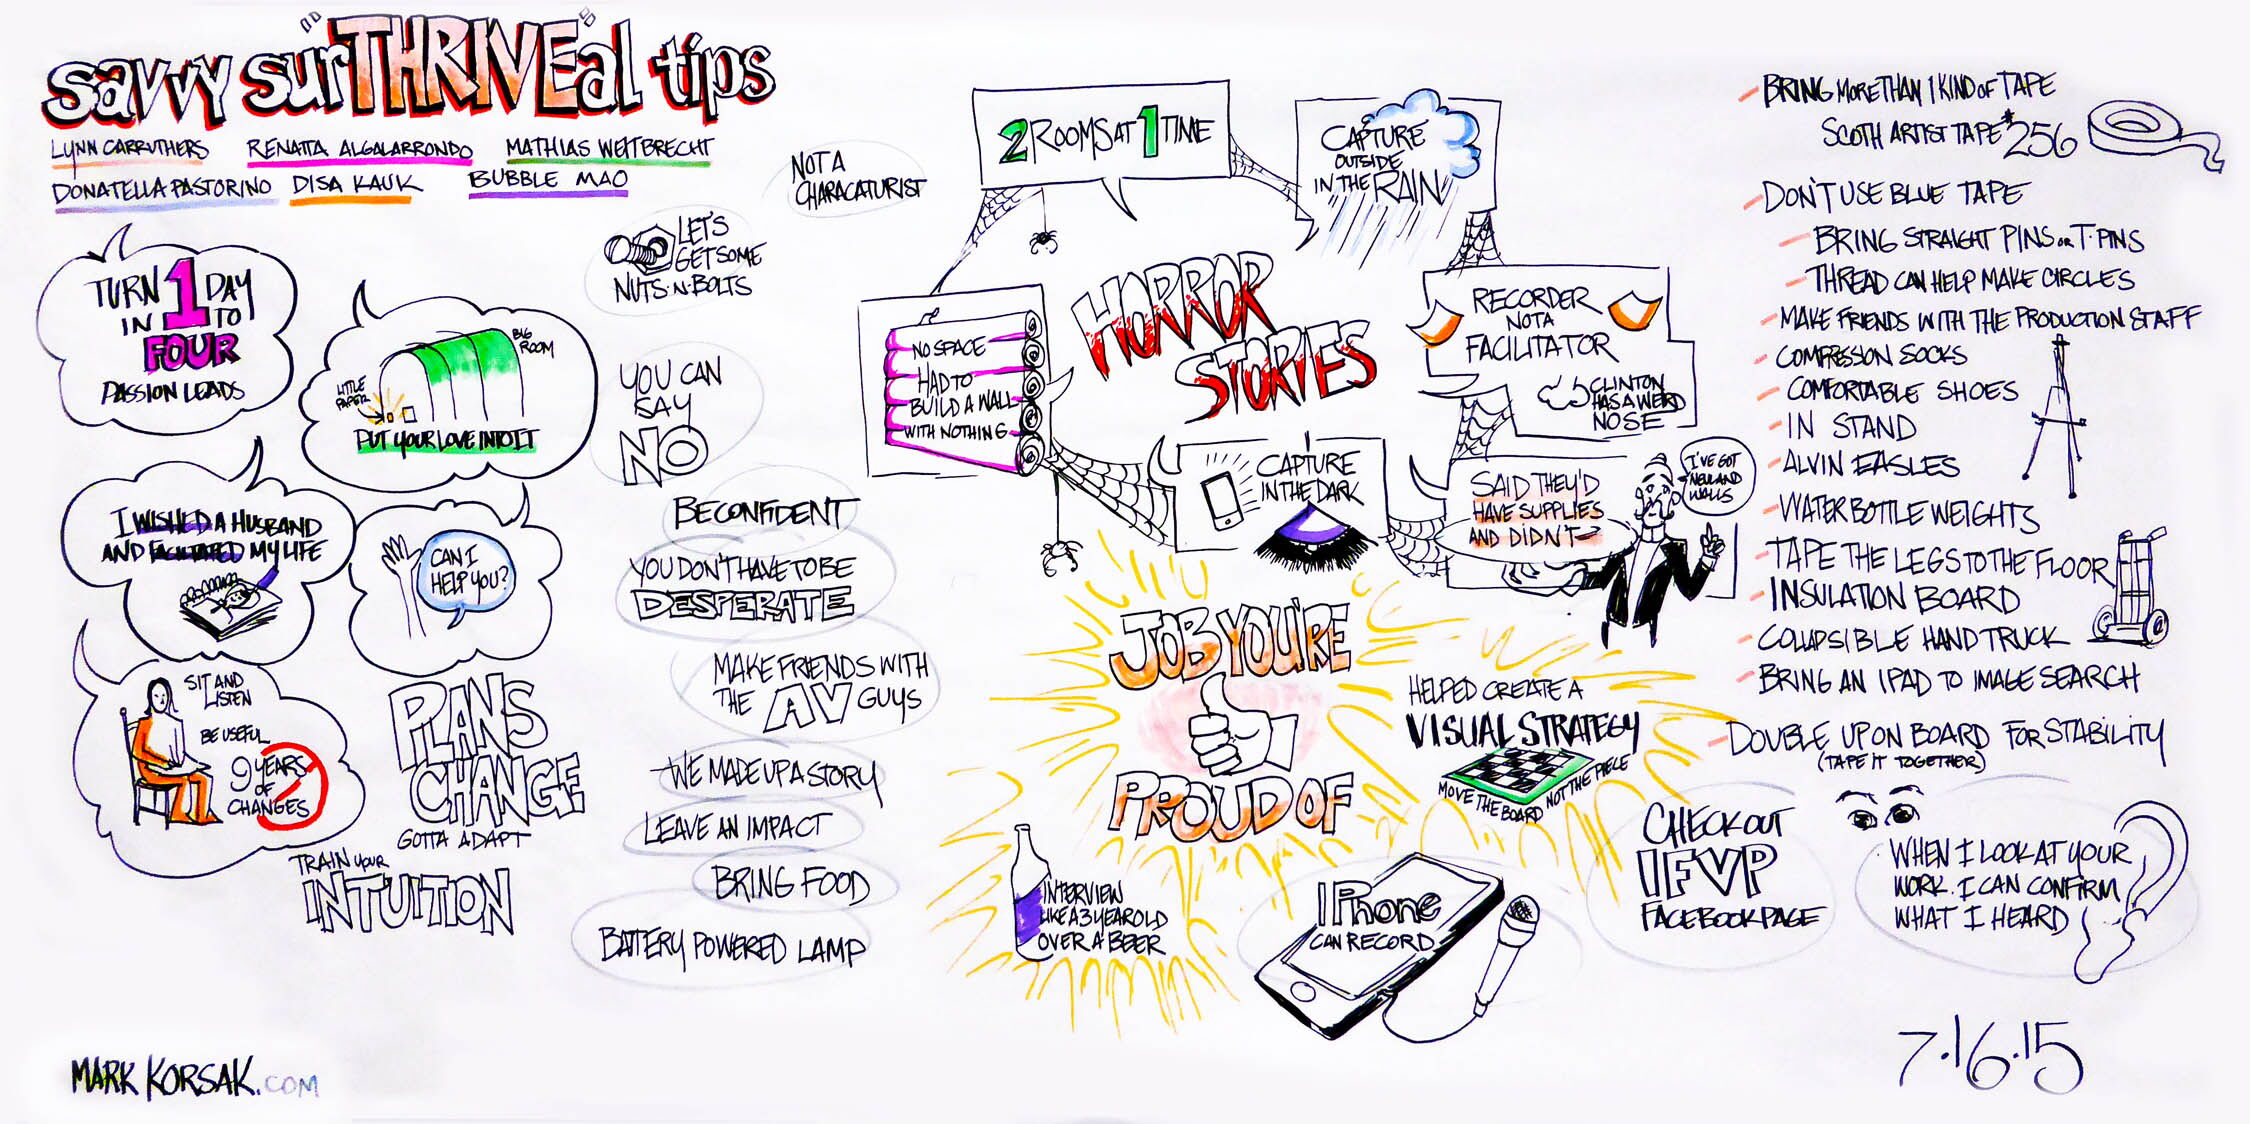 savvy sur"THRIVE"al tips
LYNN CARRUTHERS RENATTA ALGALARRONDO MATHIAS WEITBRECHT
DONATELLA PASTORINO DISA KAUK BUBBLE MAO
TURN 1 DAY
IN TO
FOUR
PASSION LEADS
BIG
ROOM
LITTLE
PAPER
PUT YOUR LOVE INTO IT
I WISHED A HUSBAND
AND FACILITATED MY LIFE
CAN I
HELP YOU?
SIT AND
LISTEN
BE USEFUL
9 YEARS
OF
CHANGES
PLANS
CHANGE
GOTTA ADAPT
TRAIN YOUR
INTUITION
NOT A
CHARACATURIST
LET'S
GET SOME
NUTS·N·BOLTS
YOU CAN
SAY
NO
BE CONFIDENT
YOU DON'T HAVE TO BE
DESPERATE
MAKE FRIENDS WITH
THE AV GUYS
WE MADE UP A STORY
LEAVE AN IMPACT
BRING FOOD
BATTERY POWERED LAMP
HORROR
STORIES
2 ROOMS AT 1 TIME
CAPTURE
OUTSIDE
IN THE RAIN
NO SPACE
HAD TO
BUILD A WALL
WITH NOTHING
RECORDER
NOT A
FACILITATOR
CLINTON
HAS A WERD
NOSE
CAPTURE
IN THE DARK
SAID THEY'D
HAVE SUPPLIES
AND DIDN'T
I'VE GOT
NEULAND
WALLS
JOB YOU'RE
PROUD OF
HELPED CREATE A
VISUAL STRATEGY
MOVE THE BOARD NOT THE PIECE
INTERVIEW
LIKE A 3 YEAR OLD
OVER A BEER
IPHONE
CAN RECORD
BRING MORE THAN 1 KIND OF TAPE
SCOTH ARTIST TAPE #256
DON'T USE BLUE TAPE
BRING STRAIGHT PINS OR T·PINS
THREAD CAN HELP MAKE CIRCLES
MAKE FRIENDS WITH THE PRODUCTION STAFF
COMPRESSON SOCKS
COMFORTABLE SHOES
IN STAND
ALVIN EASLES
WATER BOTTLE WEIGHTS
TAPE THE LEGS TO THE FLOOR
INSULATION BOARD
COLLAPSIBLE HAND TRUCK
BRING AN IPAD TO IMAGE SEARCH
DOUBLE UP ON BOARD FOR STABILITY
(TAPE IT TOGETHER)
CHECK OUT
IFVP
FACEBOOK PAGE
WHEN I LOOK AT YOUR
WORK. I CAN CONFIRM
WHAT I HEARD
7·16·15
MARK KORSAK.COM